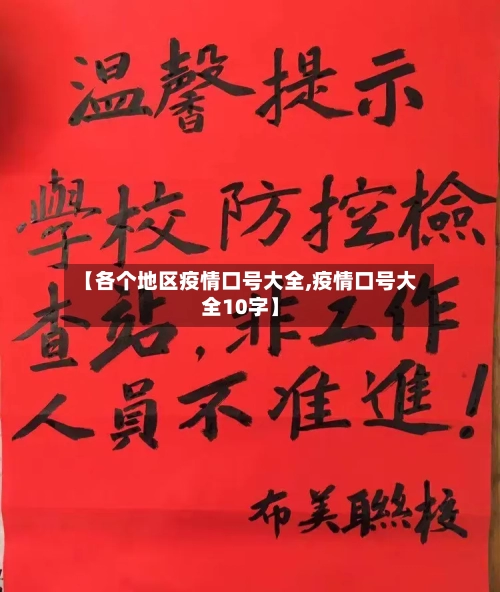 温馨提示
學校防控檢
【各个地区疫情口号大全,疫情口号大
全10字】
查站，非工作
人員不准進！
布美聯校